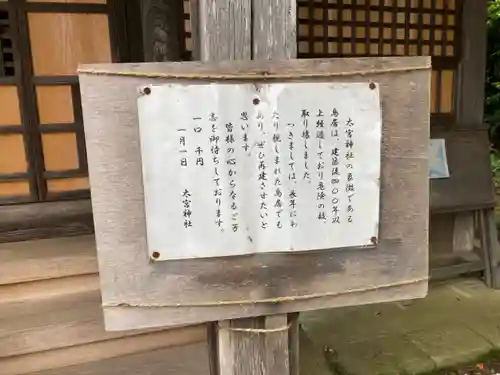 太宮神社の象徴である
鳥居は、建築後400年以
上経過しており危険の故、
取り壊しました。
つきましては、長年にわ
たり親しまれた鳥居でも
あり、ぜひ再建させたいと
思います。
皆様の心からなるご芳
志を御待ちしております。
一口 千円
一月一日
太宮神社